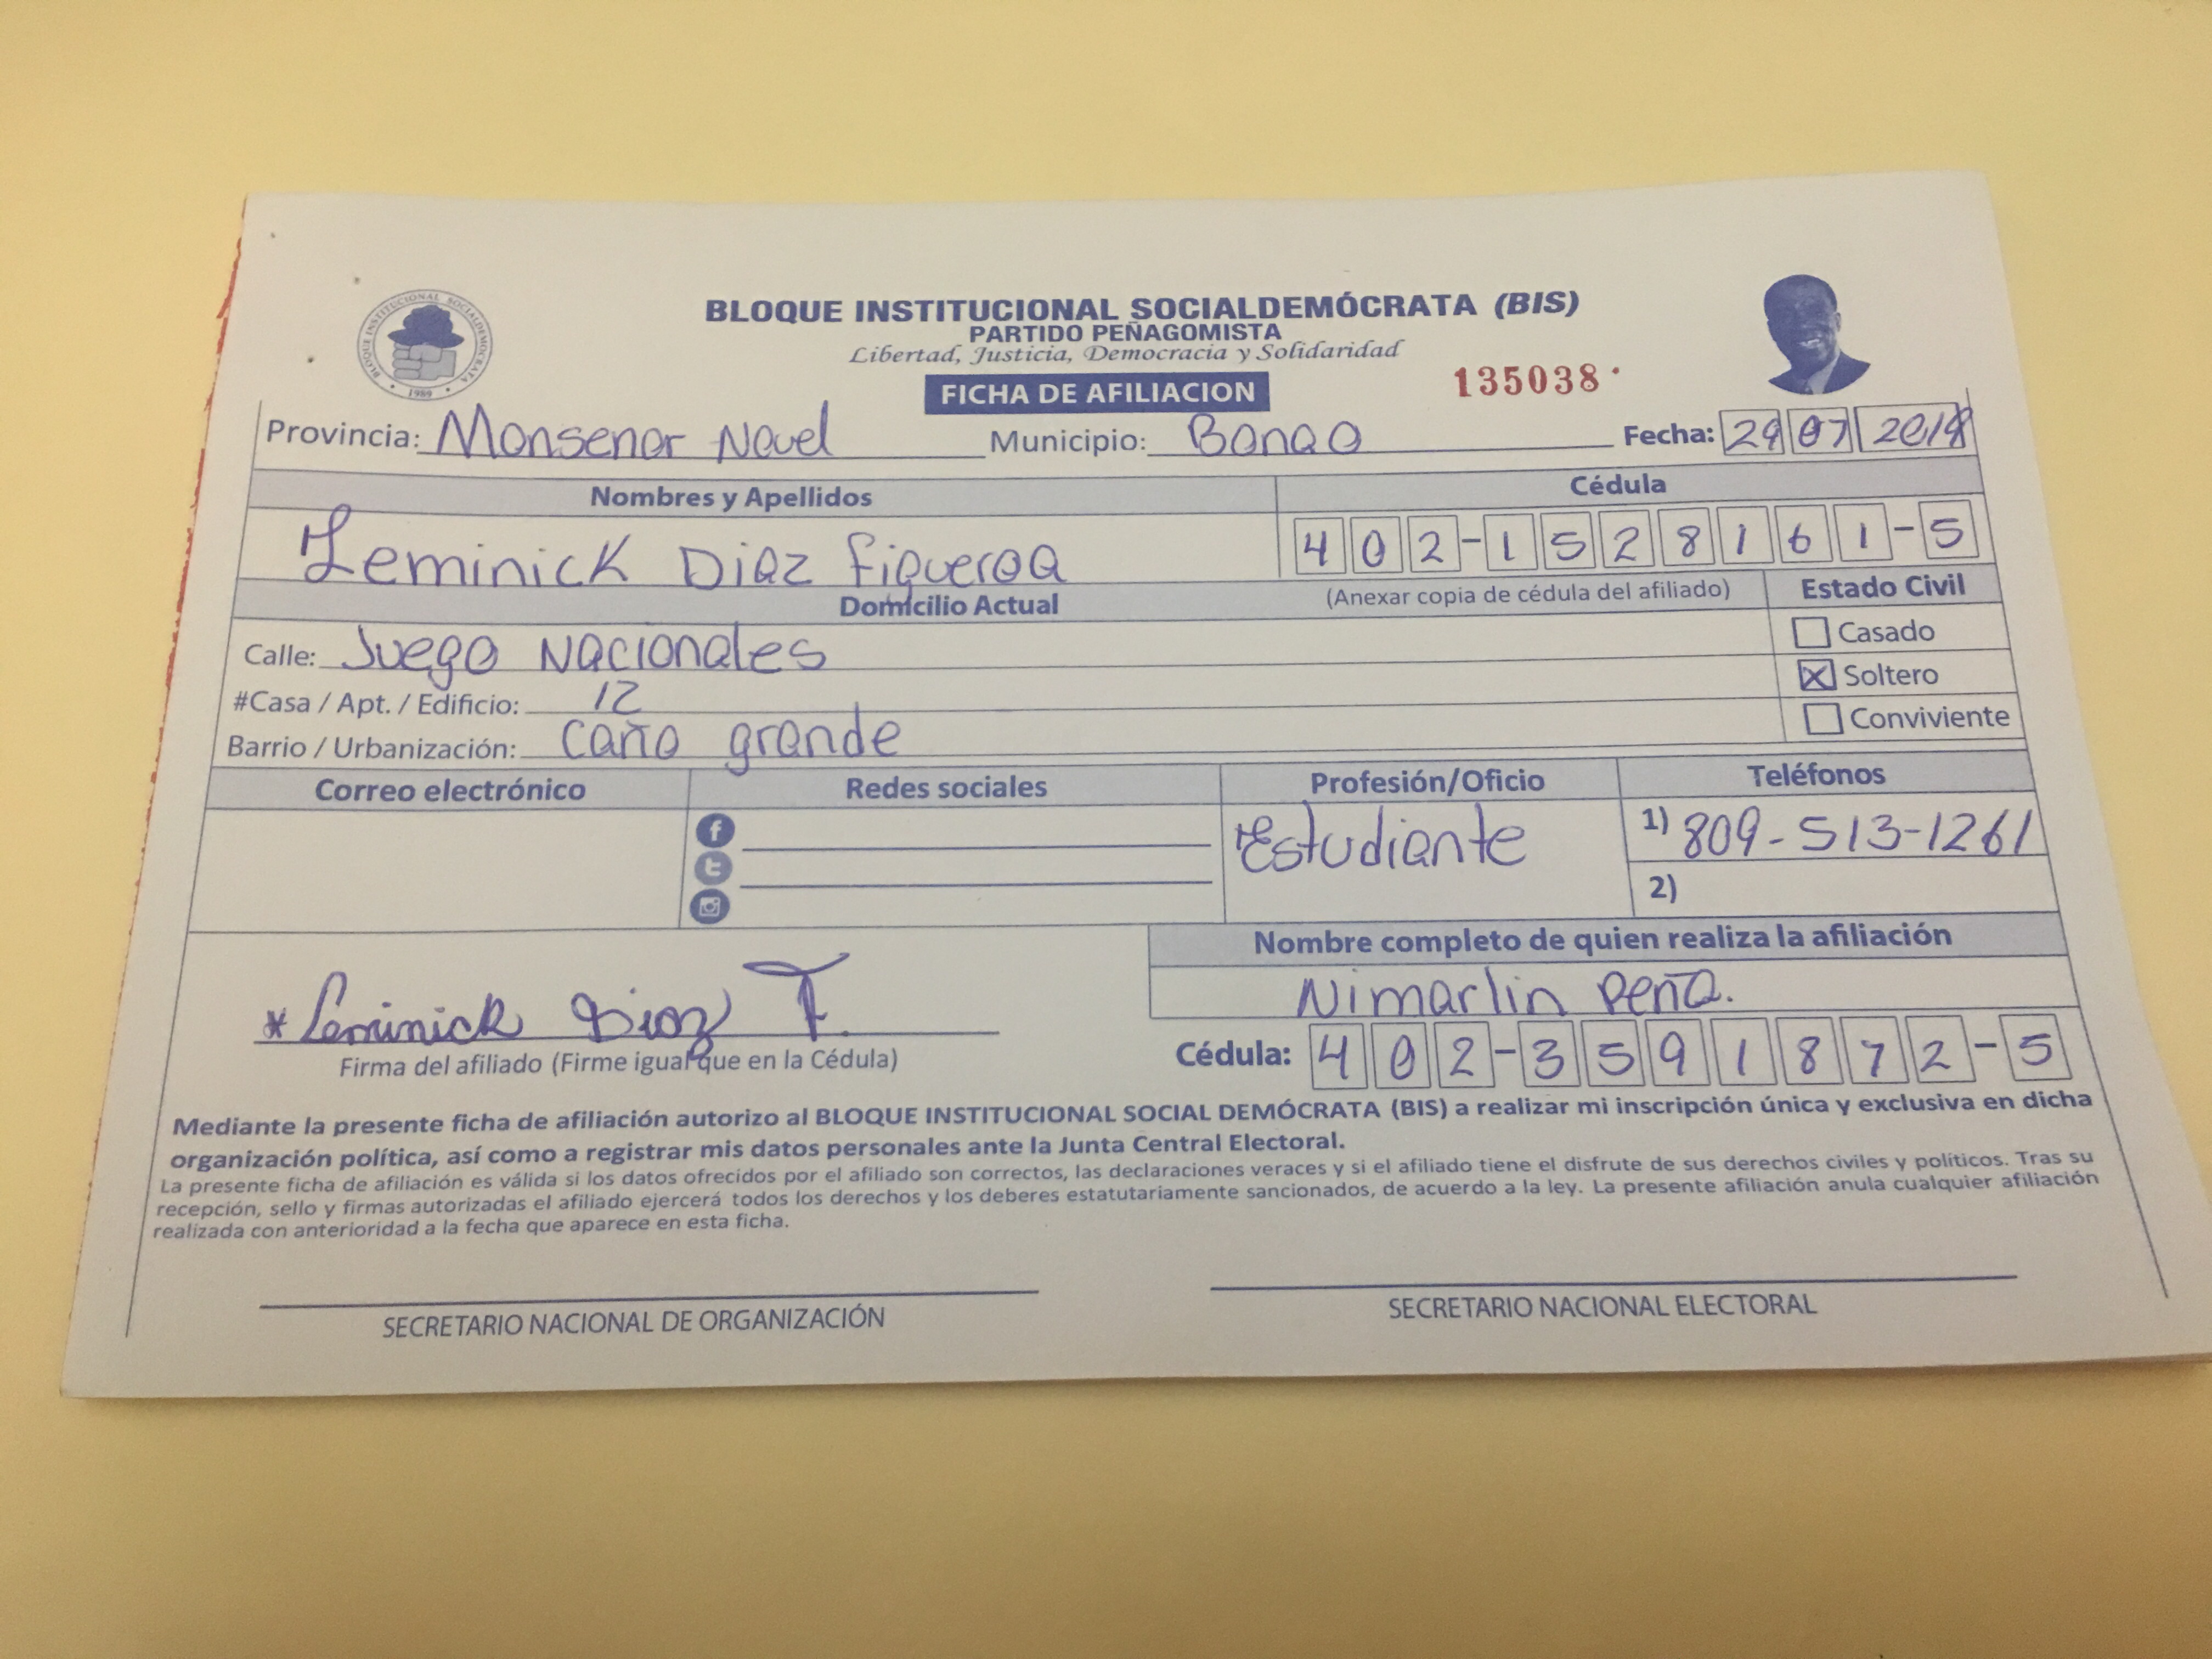 BLOQUE INSTITUCIONAL SOCIALDEMÓCRATA
1989
BLOQUE INSTITUCIONAL SOCIALDEMÓCRATA (BIS)
PARTIDO PEÑAGOMISTA
Libertad, Justicia, Democracia y Solidaridad
FICHA DE AFILIACION
135038
Provincia: Monsenor Nouel Municipio: Bonao Fecha: 29 07 2018
Nombres y Apellidos Cédula
Leminick Diaz Figueroa 402-1528161-5
Domicilio Actual (Anexar copia de cédula del afiliado) Estado Civil
Calle: Juego Nacionales Casado
#Casa / Apt. / Edificio: 12 Soltero
Barrio / Urbanización: caño grande Conviviente
Correo electrónico Redes sociales Profesión/Oficio Teléfonos
Estudiante 1) 809-513-1261
2)
Nombre completo de quien realiza la afiliación
Nimarlin Peña.
* Leminick Diaz F.
Firma del afiliado (Firme igual que en la Cédula) Cédula: 402-3591872-5
Mediante la presente ficha de afiliación autorizo al BLOQUE INSTITUCIONAL SOCIAL DEMÓCRATA (BIS) a realizar mi inscripción única y exclusiva en dicha
organización política, así como a registrar mis datos personales ante la Junta Central Electoral.
La presente ficha de afiliación es válida si los datos ofrecidos por el afiliado son correctos, las declaraciones veraces y si el afiliado tiene el disfrute de sus derechos civiles y políticos. Tras su
recepción, sello y firmas autorizadas el afiliado ejercerá todos los derechos y los deberes estatutariamente sancionados, de acuerdo a la ley. La presente afiliación anula cualquier afiliación
realizada con anterioridad a la fecha que aparece en esta ficha.
SECRETARIO NACIONAL DE ORGANIZACIÓN SECRETARIO NACIONAL ELECTORAL